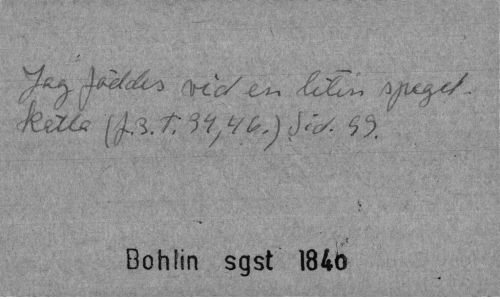 Jag föddes vid en liten spegel-
källa (f. 3. T. 34, 46.) Sid. 99.
Bohlin sgst 1840